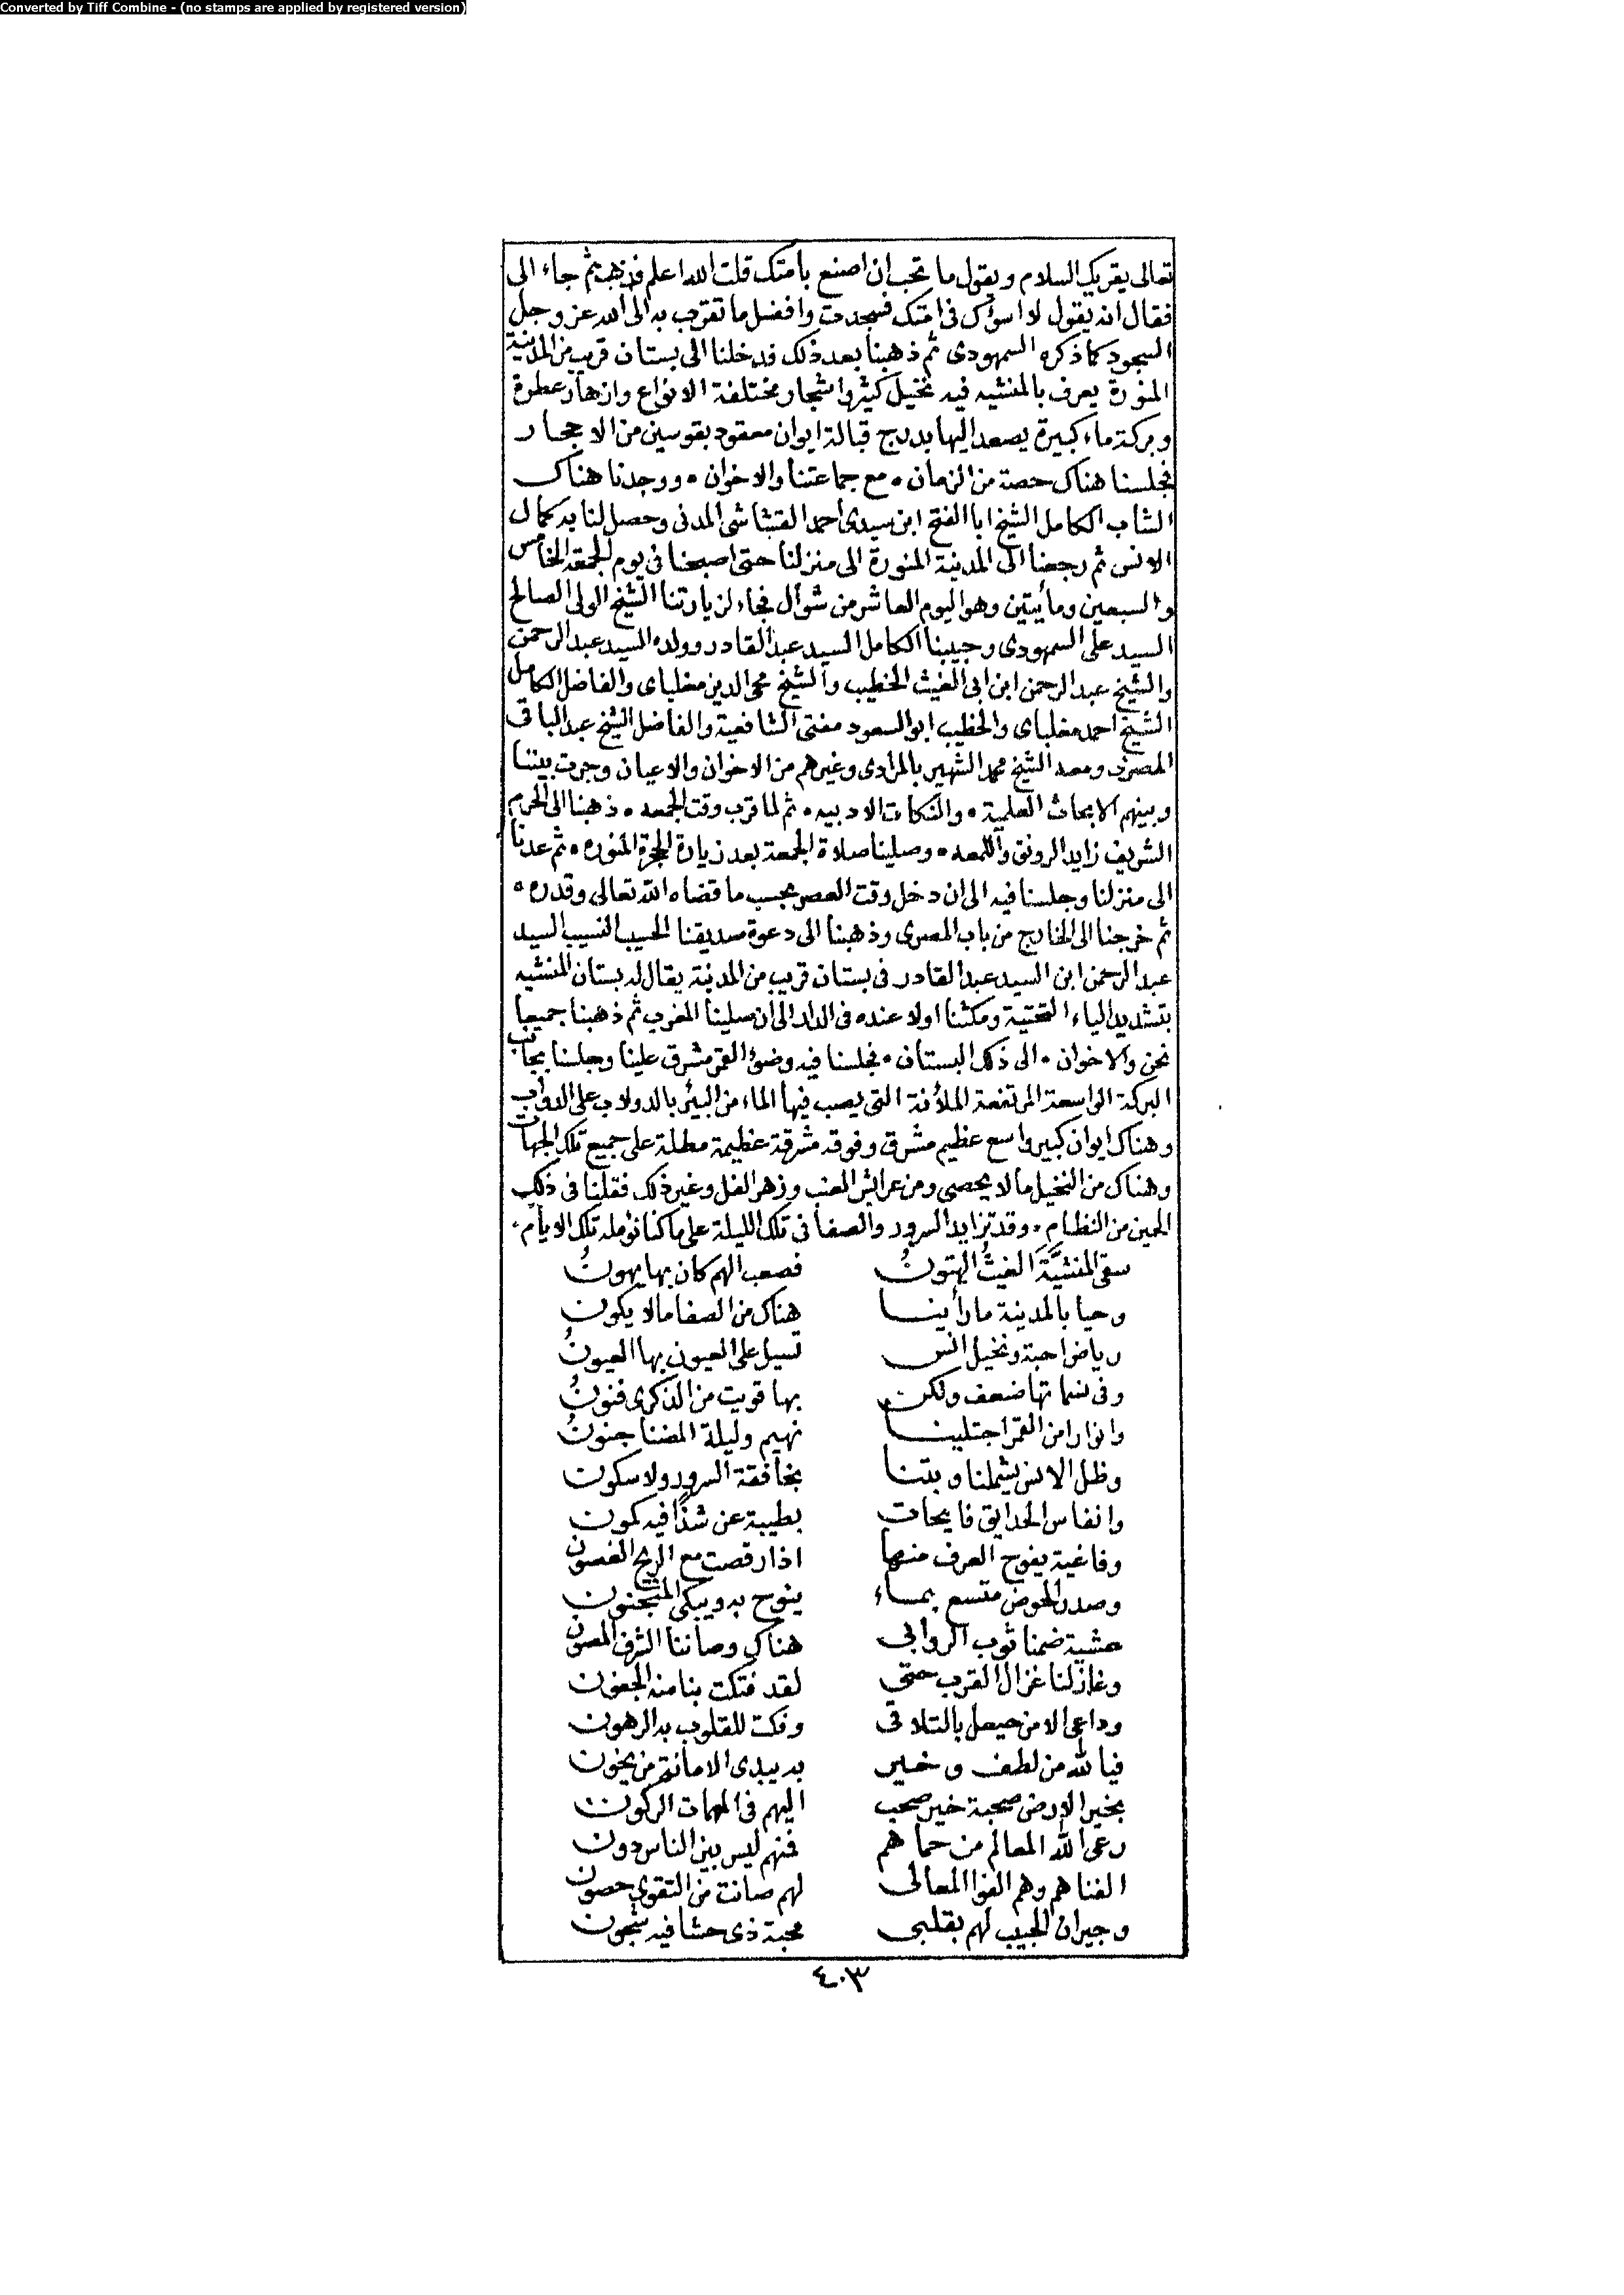 Converted by Tiff Combine - (no stamps are applied by registered version)
تعالى يقريك السلام ويقول ما تحب ان اصنع بامتك قلت الله اعلم فذهب ثم جاء الى
فقال انه يقول لا اسوك فى امتك فسجدت وافضل ما تقرب به الى الله عز وجل
السجود كما ذكره السمهودى ثم ذهبنا بعد ذلك فدخلنا الى بستان قريب من المدينة
المنورة يعرف بالمنشيه فيه نخيل كثير واشجار مختلفة الانواع وازهار عطرة
وبركة ماء كبيرة يصعد اليها بدرج قبالة ايوان معقود بقوسين من الاحجار
فجلسنا هناك حصة من الزمان * مع جماعتنا والاخوان * ووجدنا هناك
الشاب الكامل الشيخ ابا الفتح ابن سيدى احمد القشاشى المدنى وحصل لنا به كمال
الانس ثم رجعنا الى المدينة المنورة الى منزلنا حتى اصبحنا فى يوم الجمعة الخامس
والسبعين ومأيتين وهو اليوم العاشر من شوال فجاء لزيارتنا الشيخ الولى الصالح
السيد على السمهودى وحبيبنا الكامل السيد عبد القادر وولده السيد عبد الرحمن
والشيخ عبد الرحمن ابن ابى الغيث الخطيب والشيخ محى الدين مغلباى والفاضل الكامل
الشيخ احمد مغلباى والخطيب ابو السعود مفتى الشافعية والفاضل الشيخ عبد الباقى
المصرى ومعه الشيخ محمد الشهير بالمرادى وغيرهم من الاخوان والاعيان وجرت بيننا
وبينهم الابحاث العلمية * والنكات الادبيه * ثم لما قرب وقت الجمعه * ذهبنا الى الحرم
الشريف زايد الرونق واللمعه * وصلينا صلاة الجمعة بعد زيارة الحجرة المنوره * ثم عدنا
الى منزلنا وجلسنا فيه الى ان دخل وقت العصر بحسب ما قضاه الله تعالى وقدره *
ثم خرجنا الى الخارج من باب المصرى وذهبنا الى دعوة صديقنا الحسيب النسيب السيد
عبد الرحمن ابن السيد عبد القادر فى بستان قريب من المدينة يقال له بستان المنشيه
بتشديد الياء التحتية ومكثنا اولا عنده فى الدار الى ان صلينا المغرب ثم ذهبنا جميعا
نحن والاخوان * الى ذلك البستان * فجلسنا فيه وضوء القمر مشرق علينا وجلسنا بجانب
البركة الواسعة المرتفعة الملأنة التى يصب فيها الماء من البئر بالدولاب على الدواب
وهناك ايوان كبير واسع عظيم مشرق وفوقه مشرقة عظيمة مطلة على جميع تلك الجهات
وهناك من النخيل ما لا يحصى ومن عرايش العنب وزهر الفل وغير ذلك فقلنا فى ذلك
الحين من النظام * وقد تزايد السرور والصفا فى تلك الليلة على ما كنا نؤمله تلك الايام *
سقى المنشيَّةَ الغيثُ الهتونُ فصعب الهم كان بها يهونُ
وحيا بالمدينة ما رأينا هناك من الصفا ما لا يكون
رياض احبة ونخيل انس تسيل على العيون بها العيونُ
وفى نسماتها ضعف ولكن بها قويت من الذكرى فنونُ
وانوارا من القمر اجتلينا نهيم وليلة المضنا جنونُ
وظل الانس يشملنا وبتنا بخافقة السرور ولا سكون
وانفاس الحدايق فايحات بطيبة عن شذًا فيه كمون
وفاغية يفوح العرف منها اذا رقصت مع الريح الغصون
وصدر الحوض متسع بماء ينوح به ويبكى المنجنون
عشية ضمنا ثوب الروابى هناك وصاننا الشرف المصون
وغازلنا غزال القرب حتى لقد فتكت بنا منه الجفون
وداعى الامن حيعل بالتلاقى وفكت للقلوب به الرهون
فيا لله من لطف وخير به يبدى الامانة من يخون
بخير الارض صحبة خير صحب اليهم فى المهمات الركون
رعى الله المعالم من حماهم فمنهم ليس بين الناس دون
الفناهم وهم الفوا المعالى لهم صانت من التقوى حصون
وجيران الحبيب لهم بقلبى محبة ذى حشا فيه شجون
٤٠٣